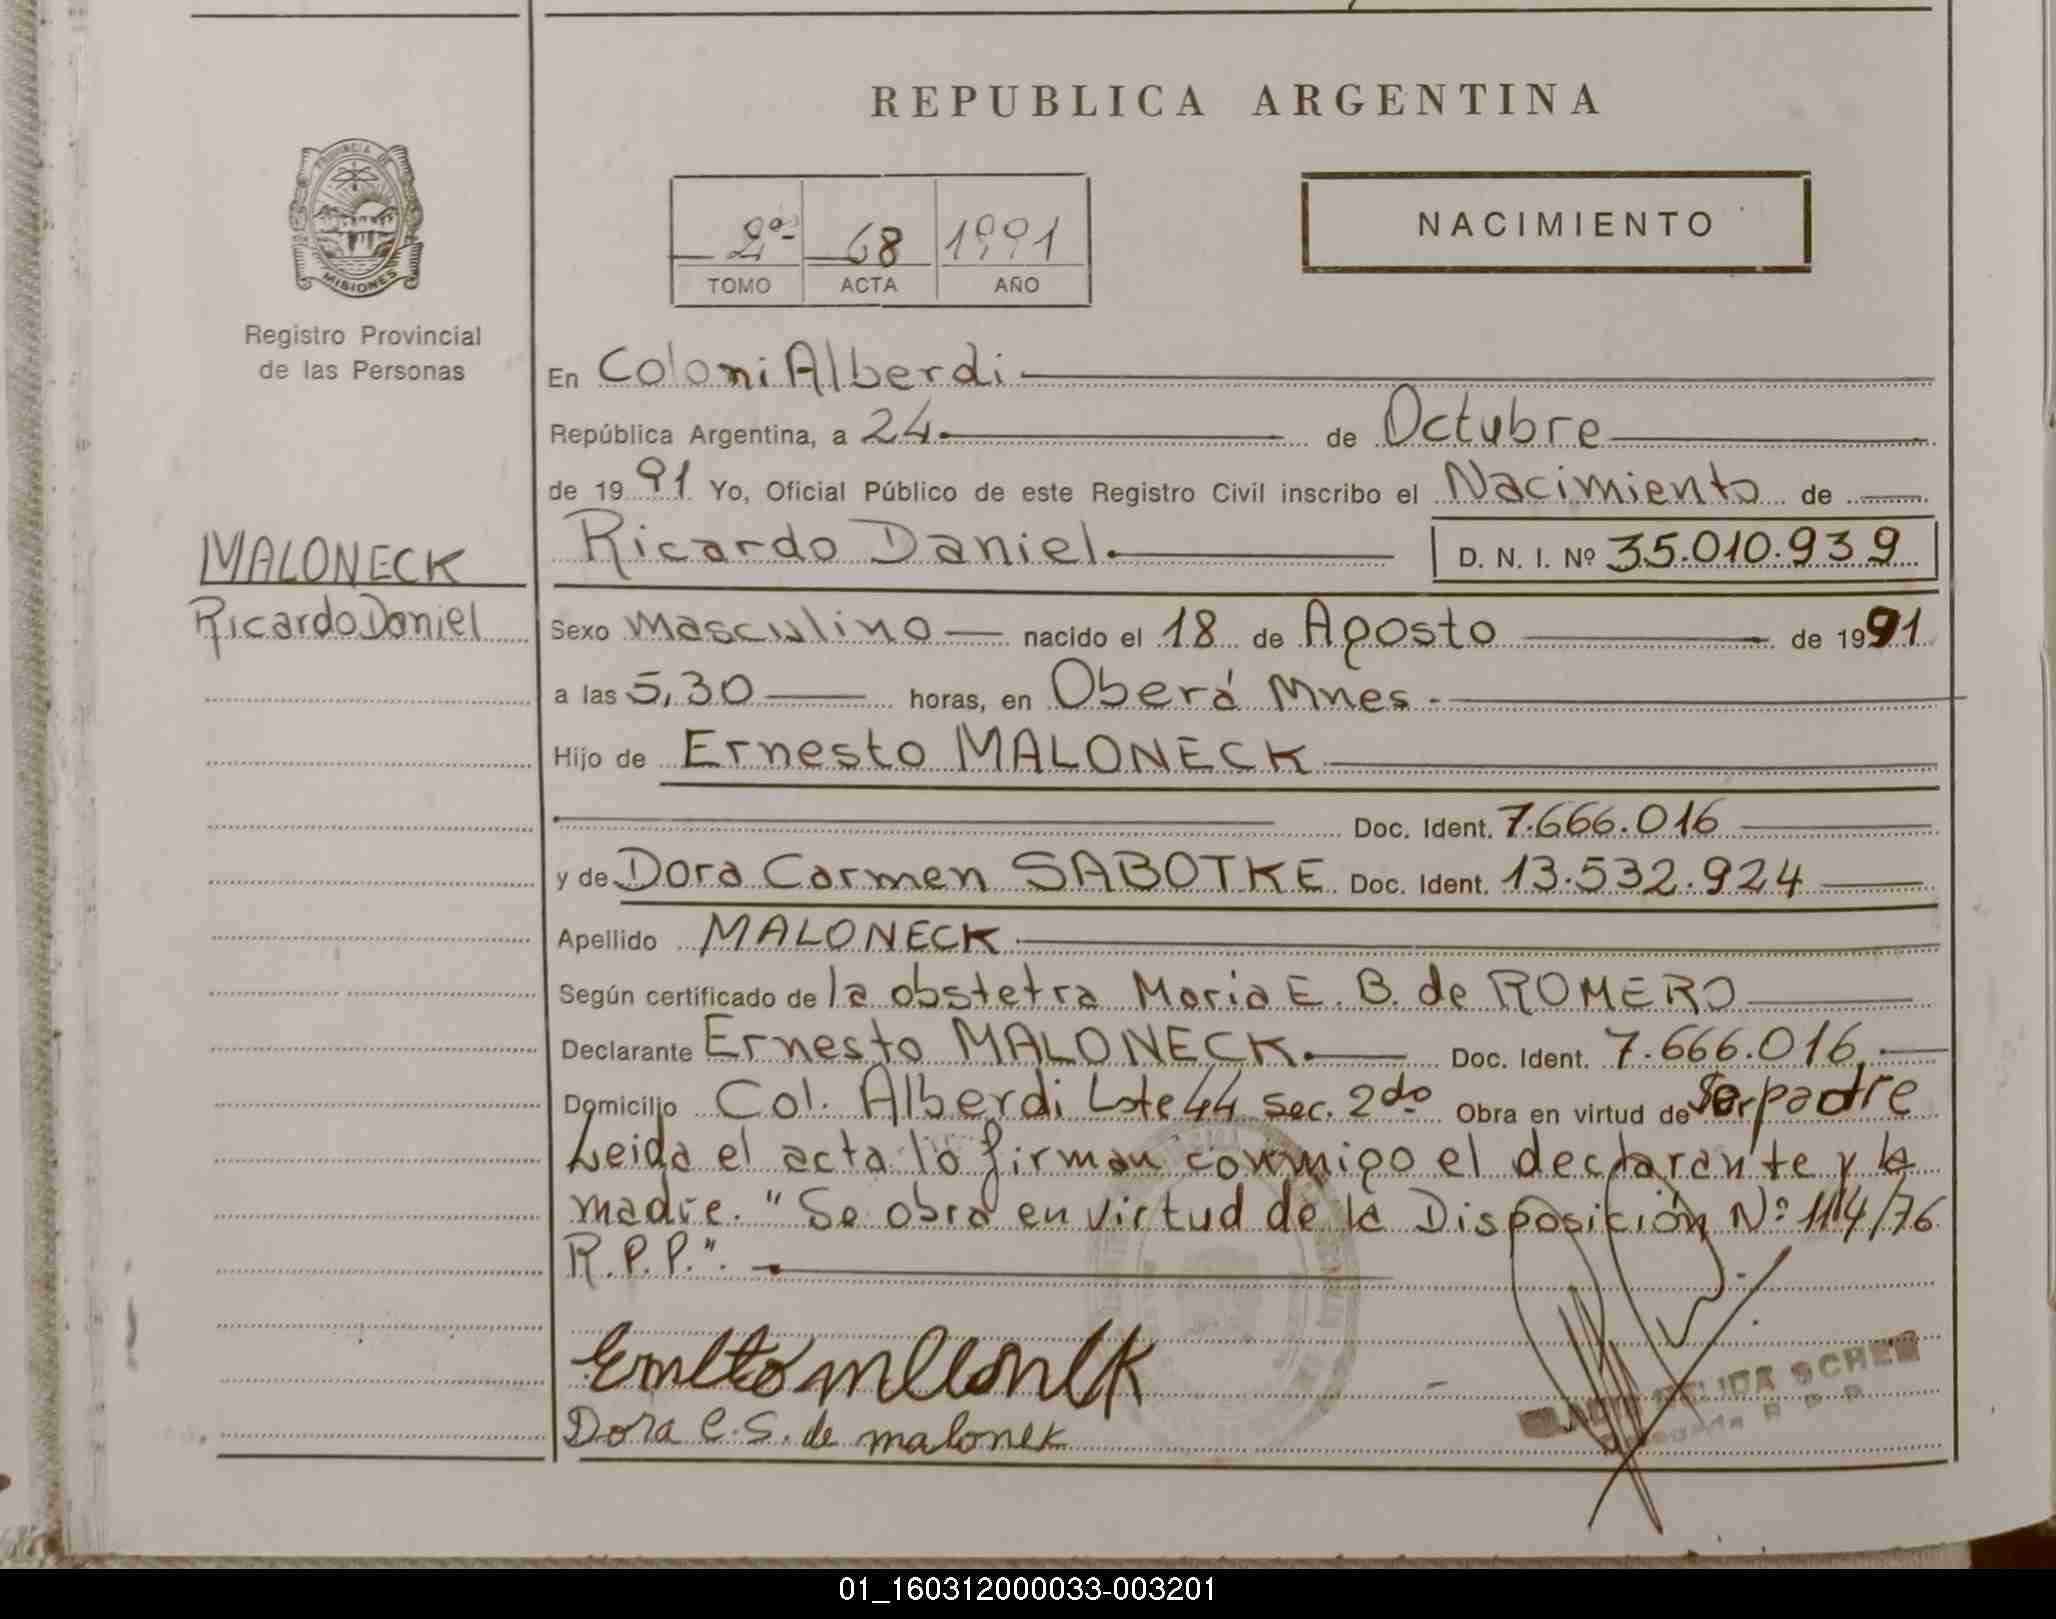 REPUBLICA ARGENTINA
PROVINCIA DE
MISIONES
Registro Provincial
de las Personas
2º 68 1991
TOMO ACTA AÑO
NACIMIENTO
En Coloni Alberdi
República Argentina, a 24 de Octubre
de 1991 Yo, Oficial Público de este Registro Civil inscribo el Nacimiento de
MALONECK
Ricardo Daniel
Ricardo Daniel D. N. I. Nº 35.010.939
Sexo masculino nacido el 18 de Agosto de 1991
a las 5,30 horas, en Oberá Mnes.
Hijo de Ernesto MALONECK
Doc. Ident. 7.666.016
y de Dora Carmen SABOTKE Doc. Ident. 13.532.924
Apellido MALONECK
Según certificado de la obstetra Maria E. B. de ROMERO
Declarante Ernesto MALONECK. Doc. Ident. 7.666.016
Domicilio Col. Alberdi Lote 44 Sec. 2do Obra en virtud de Ser padre
Leida el acta lo firman conmigo el declarante y la
madre. "Se obra en virtud de la Disposición Nº 114/76
R.P.P.".
Dora C. S. de malonek
SCHE
R P P
01_160312000033-003201